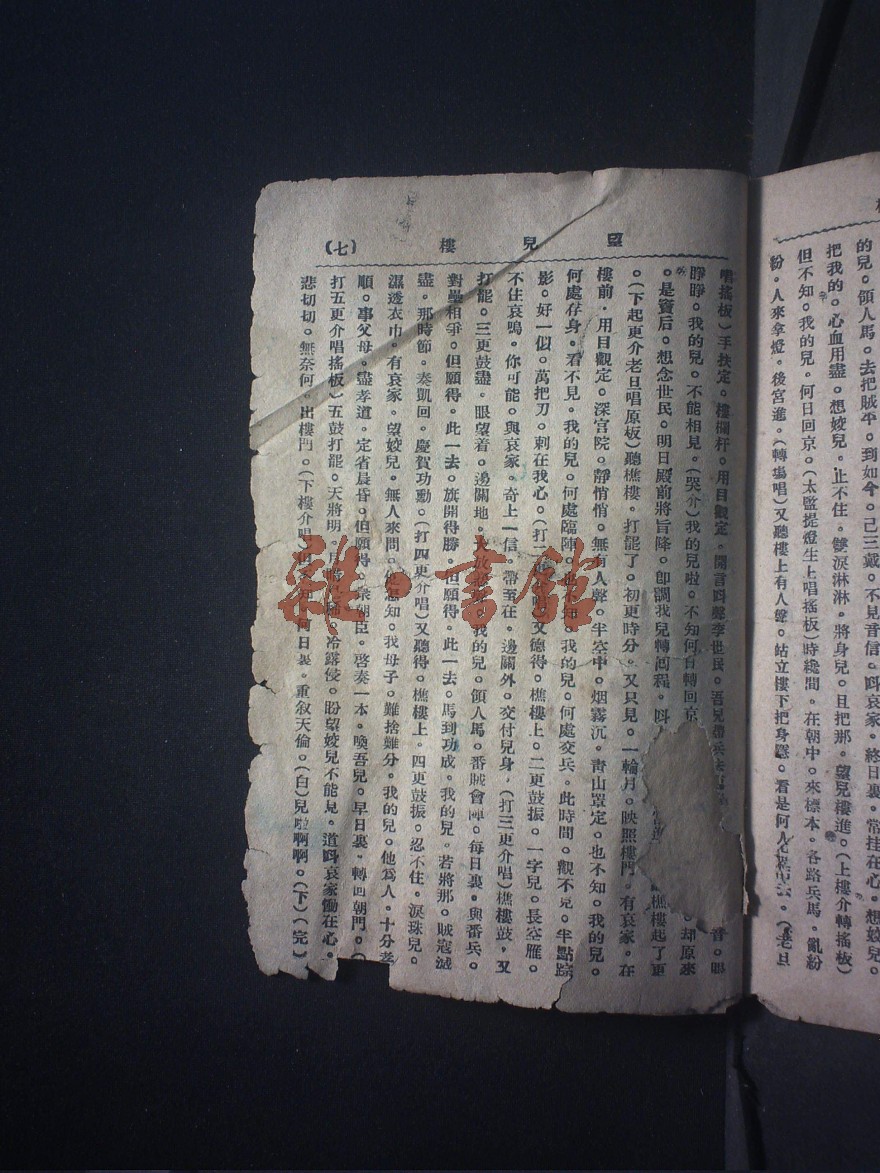 的兒。領人馬。去把賊平。到如今。己三戴。不見音信。呌哀家。終日裏。常挂在心。想姣兒。
把我的。心血用盡。想姣兒。止不住。雙淚淋淋。將身兒。且把那。望兒樓進。(上樓介轉搖板)
但不知。我的兒。何日回京。(太監提燈生上唱搖板)時纔間。在朝中。來標本。各路兵馬。亂紛
粉。人來拿燈。後宮進。(轉塲唱)又聽樓上有人聲。站立樓下把身蹲。看是何人(老旦
望兒樓 (七)
唱搖板)手扶定。樓欄杆。用目觀定。開言呌聲李世民。吾兒帶兵 音。眼
睜睜。我的兒。不能相見。(哭介)我的兒啦。不知何日轉回京 却原來
。是竇后。想念世民。明日殿前將旨降。卽調我兒轉回程。 樵樓起了更
。(下起更介老旦唱原板)聽樵樓。打罷了。初更時分。又只見。一輪月。映照樓門。有哀家。在
樓前。用目觀定。深宮院。靜悄悄。無有人聲。半空中。烟霧沉。靑山罩定。也不知。我的兒。
何處存身。看不見。我的兒。何處臨陣。也不知。我的兒。何處交兵。此時間。觀不見。半點踪
影。好一似。萬把刀。刺在我心。(打二 又德得。樵樓上。二更鼓振。一字兒。長空雁。
不住哀鳴。你可能。與哀家。奇上一信。帶至在。邊關外。交付兒身，(打三更介唱)樵樓鼓。又
打罷。三更鼓盡。眼望着。邊關地。大放 我的兒。領人馬。番賊會陣。每日裏。與番兵。
對壘相爭。但願得。此一去。旗開得勝。但願得。此一去。馬到功成。我的兒。若將那。賊寇滅
盡。那時節。奏凱回。慶賀功勳。(打四更介唱)又聽得。樵樓上。四更鼓振。忍不住。淚珠兒。
濕透衣巾。有哀家。望姣兒。無人來問。 怎知。我母子。難捨難分。我的兒。他爲人。十分孝
順。事父母。盡孝道。定省晨昏。但願得。衆朝臣。啓奏一本。喚吾兒。早日裏。轉回朝門。(
打五更介唱搖板)五鼓打罷。天將明。 冷露侵。盼望姣兒不能見。道呌哀家慟在心。
悲切切。無奈何。出樓門。(下樓介唱 何日裏。重叙天倫。(白)兒啦啊啊。(下)(完)
雜·書館